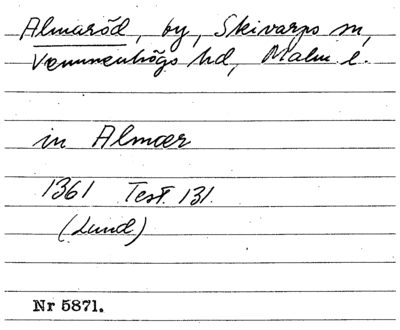 Almaröd, by, Skivarps sn,
Vemmenhögs hd, Malm l.
in Almær
1361 Test. 131.
(Lund)
Nr 5871.